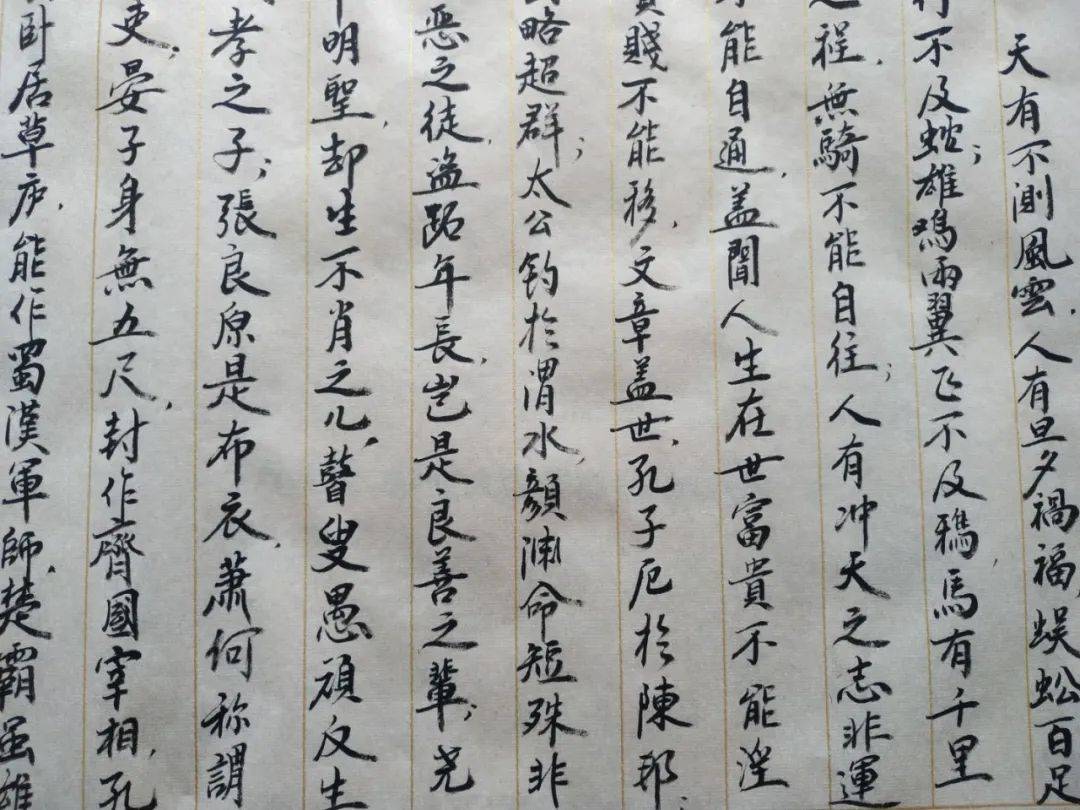 天有不測風雲，人有旦夕禍福，蜈蚣百足
行不及蛇；雄鸡兩翼飞不及鴉，馬有千里
之程，無騎不能自往；人有冲天之志非運
能自通，盖聞人生在世富貴不能淫
賤不能移，文章盖世，孔子厄於陳邦；
略超群；太公钓於渭水，顏渊命短殊非
惡之徒，盗跖年長，岂是良善之輩；尧
明聖，却生不肖之儿，瞽叟愚頑反生
孝之子；張良原是布衣，萧何称謂
吏，晏子身無五尺，封作齊國宰相，孔
卧居草庐，能作蜀漢軍師，楚霸虽雄